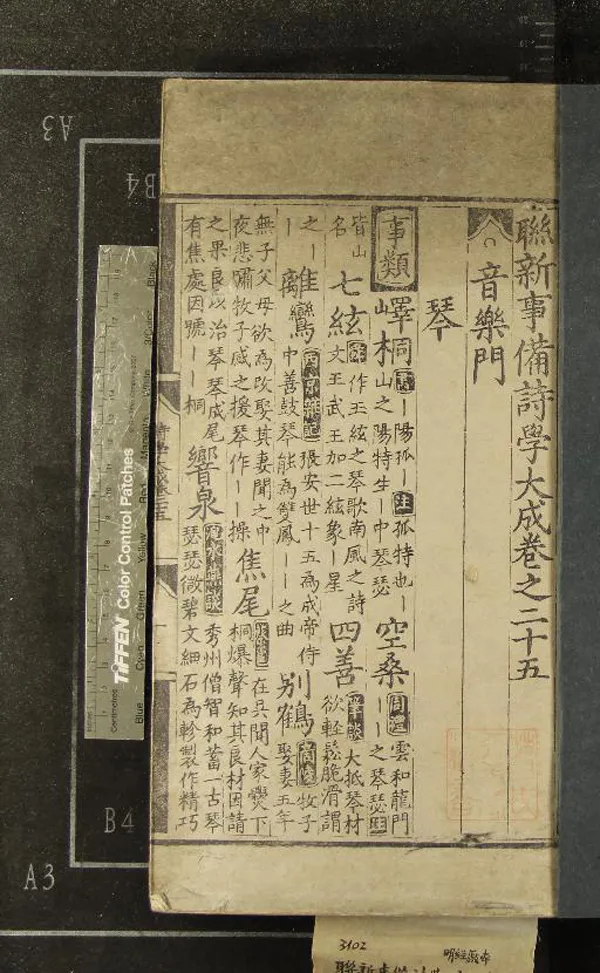 聯新事備詩學大成卷之二十五
音樂門
琴
事類 嶧桐 書｜陽孤｜注孤特也｜山之陽特生｜中琴瑟 空桑 周禮雲和龍門｜｜之琴瑟注
皆山名 七絃 作五絃之琴歌南風之詩文王武王加二絃象｜星 四善 筆談大抵琴材欲輕鬆脆滑謂
之｜｜ 離鸞 西京雜記張安世十五為成帝侍中善鼓琴能為雙鳳｜｜之曲 别鶴 商陵牧子娶妻五年
無子父母欲為改娶其妻聞之中夜悲嘯牧子感之援琴作｜｜操 焦尾 在吳聞人家爨下桐爆聲知其良材因請
之果良以治琴琴成尾有焦處因號｜｜桐 響泉 秀州僧智和蓄一古琴瑟瑟微碧文細石為軫製作精巧
A3
B4
B4
A3
TIFFEN Color Control Patches
Centimetres
Blue
Cyan
Green
Yellow
Red
Magenta
White
Black
3102